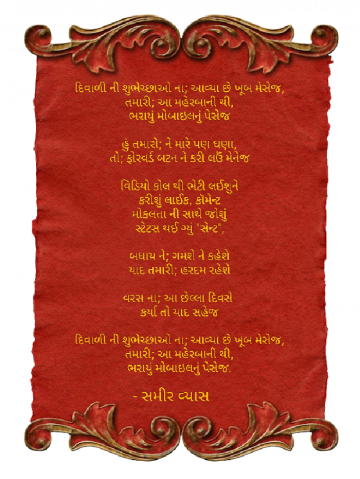 દિવાળી ની શુભેચ્છાઓ ના; આવ્યા છે ખૂબ મેસેજ,
તમારી; આ મહેરબાની થી,
ભરાયું મોબાઇલનું પેસેજ
હું તમારો; ને મારે પણ ઘણા,
તો; ફોરવર્ડ બટન ને કરી લઉં મેનેજ
વિડિયો કોલ થી ભેટી લઈશુને
કરીશું લાઈક, કોમેન્ટ
મોકલતા ની સાથે જોશું
સ્ટેટસ થઈ ગ્યું "સેન્ટ",
બધાય ને; ગમશે ને કહેશે
યાદ તમારી; હરદમ રહેશે
વરસ ના; આ છેલ્લા દિવસે
કર્યા તો યાદ સહેજ
દિવાળી ની શુભેચ્છાઓ ના; આવ્યા છે ખૂબ મેસેજ,
તમારી; આ મહેરબાની થી,
ભરાયું મોબાઇલનું પેસેજ.
- સમીર વ્યાસ